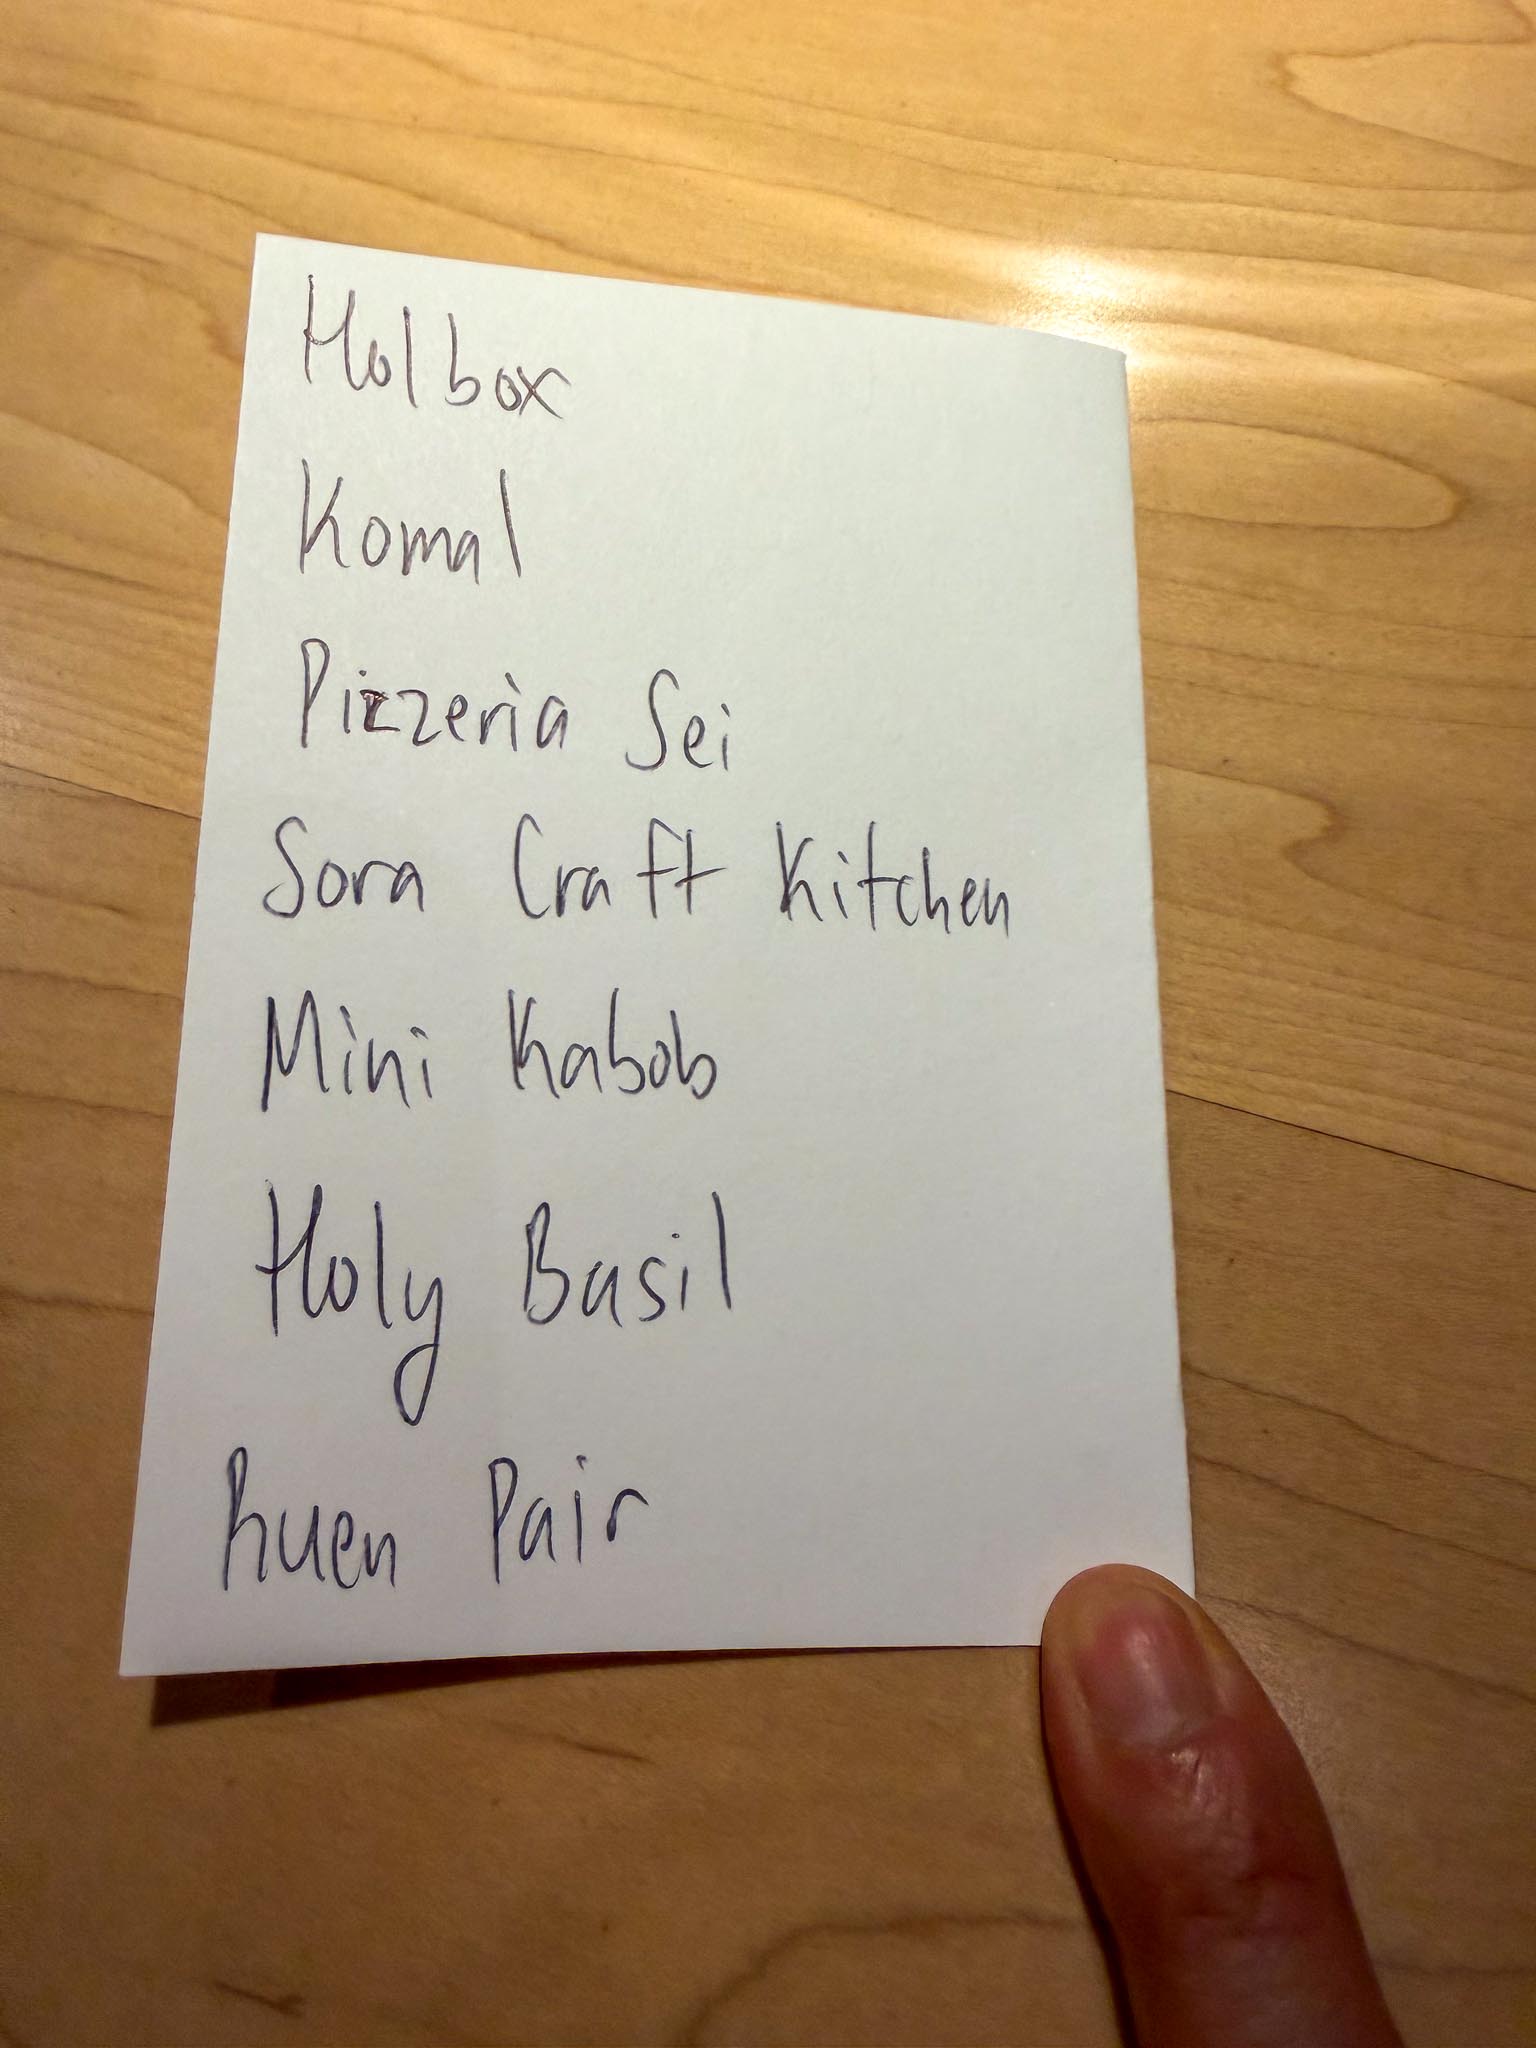 Holbox
Komal
Pizzeria Sei
Sora Craft Kitchen
Mini Kabob
Holy Basil
Ruen Pair